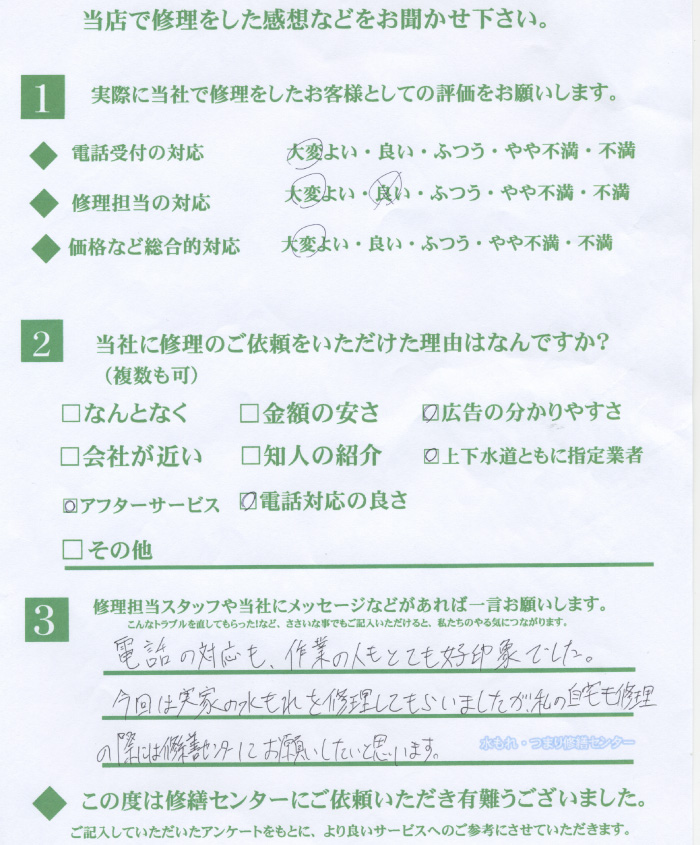 当店で修理をした感想などをお聞かせ下さい。
1 実際に当社で修理をしたお客様としての評価をお願いします。
◆ 電話受付の対応 大変よい・良い・ふつう・やや不満・不満
◆ 修理担当の対応 大変よい・良い・ふつう・やや不満・不満
◆ 価格など総合的対応 大変よい・良い・ふつう・やや不満・不満
2 当社に修理のご依頼をいただけた理由はなんですか?
（複数も可）
□なんとなく □金額の安さ □広告の分かりやすさ
□会社が近い □知人の紹介 □上下水道ともに指定業者
□アフターサービス □電話対応の良さ
□その他
3 修理担当スタッフや当社にメッセージなどがあれば一言お願いします。
こんなトラブルを直してもらった!など、ささいな事でもご記入いただけると、私たちのやる気につながります。
電話の対応も、作業の人もとても好印象でした。
今回は実家の水もれを修理してもらいましたが、私の自宅も修理
の際には修善センターにお願いしたいと思います。
水もれ・つまり修繕センター
◆ この度は修繕センターにご依頼いただき有難うございました。
ご記入していただいたアンケートをもとに、より良いサービスへのご参考にさせていただきます。